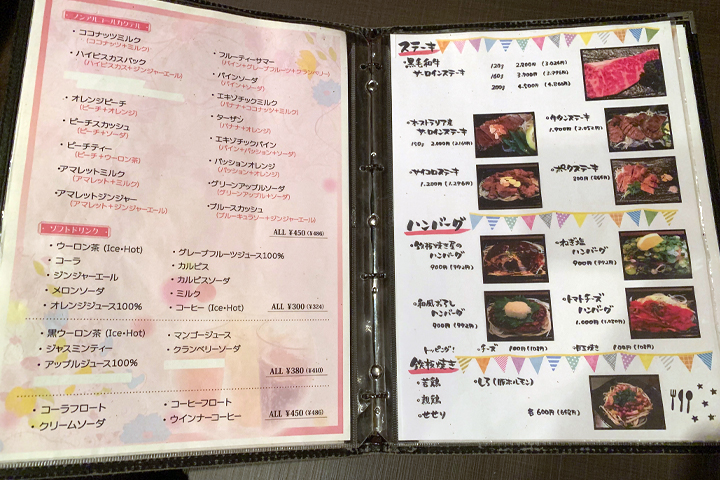 ノンアルコールカクテル
・ココナッツミルク
(ココナッツ+ミルク)
・ハイビスカスバック
(ハイビスカス+ジンジャーエール)
・オレンジピーチ
(ピーチ+オレンジ)
・ピーチスカッシュ
(ピーチ+ソーダ)
・ピーチティー
(ピーチ+ウーロン茶)
・アマレットミルク
(アマレット+ミルク)
・アマレットジンジャー
(アマレット+ジンジャーエール)
・フルーティーサマー
(パイン+グレープフルーツ+クランベリー)
・パインソーダ
(パイン+ソーダ)
・エキゾチックミルク
(バナナ+ココナッツ+ミルク)
・ターザン
(バナナ+オレンジ)
・エキゾチックパイン
(パイン+パッション+ソーダ)
・パッションオレンジ
(パッション+オレンジ)
・グリーンアップルソーダ
(グリーンアップル+ソーダ)
・ブルースカッシュ
(ブルーキュラソー+ジンジャーエール)
ALL ¥450 (¥486)
ソフトドリンク
・ウーロン茶 (Ice・Hot)
・コーラ
・ジンジャーエール
・メロンソーダ
・オレンジジュース100%
・グレープフルーツジュース100%
・カルピス
・カルピスソーダ
・ミルク
・コーヒー (Ice・Hot)
ALL ¥300 (¥324)
・黒ウーロン茶 (Ice・Hot)
・ジャスミンティー
・アップルジュース100%
・マンゴージュース
・クランベリーソーダ
ALL ¥380 (¥410)
・コーラフロート
・クリームソーダ
・コーヒーフロート
・ウインナーコーヒー
ALL ¥450 (¥486)
ステーキ
・黒毛和牛
サーロインステーキ
120g 2.800円 (3.024円)
160g 3.700円 (3.996円)
200g 4.500円 (4.860円)
・オーストラリア産
サーロインステーキ
150g 2.000円 (2.160円)
・牛タンステーキ
1.900円 (2.052円)
・サイコロステーキ
1.200円 (1.296円)
・ポークステーキ
800円 (864円)
ハンバーグ
・鉄板焼き屋の
ハンバーグ
900円 (972円)
・ねぎ塩
ハンバーグ
900円 (972円)
・和風おろし
ハンバーグ
900円 (972円)
・トマトチーズ
ハンバーグ
1.000円 (1.080円)
トッピング!
・チーズ 100円 (108円)
・目玉焼き 100円 (108円)
鉄板焼き
・若鶏
・親鶏
・せせり
・しろ (豚ホルモン)
各600円 (648円)